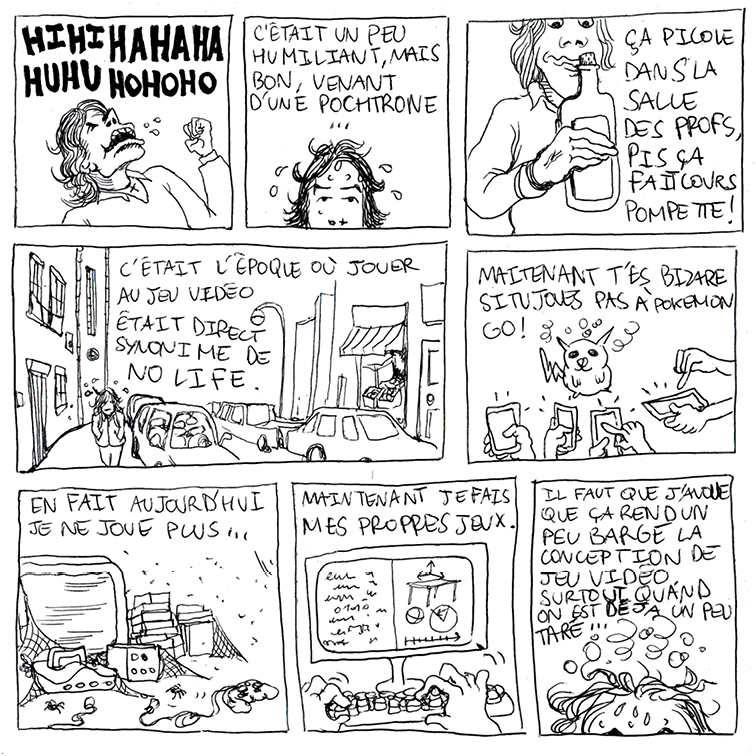 HIHI HAHAHA
HUHU HOHOHO
C'ÉTAIT UN PEU
HUMILIANT, MAIS
BON, VENANT
D'UNE POCHTRONE
...
ÇA PICOLE
DANS LA
SALLE
DES PROFS,
PIS ÇA
FAIT COURS
POMPETTE!
C'ÉTAIT L'ÉPOQUE OÙ JOUER
AU JEU VIDÉO
ÉTAIT DIRECT
SYNONIME DE
NO LIFE.
MAITENANT T'ES BIZARE
SI TU JOUES PAS À POKEMON
GO!
EN FAIT AUJOURD'HUI
JE NE JOUE PLUS...
MAINTENANT JE FAIS
MES PROPRES JEUX.
IL FAUT QUE J'AVOUE
QUE ÇA REND UN
PEU BARGE LA
CONCEPTION DE
JEU VIDÉO
SURTOUT QUAND
ON EST DÉJÀ UN PEU
TARÉ...